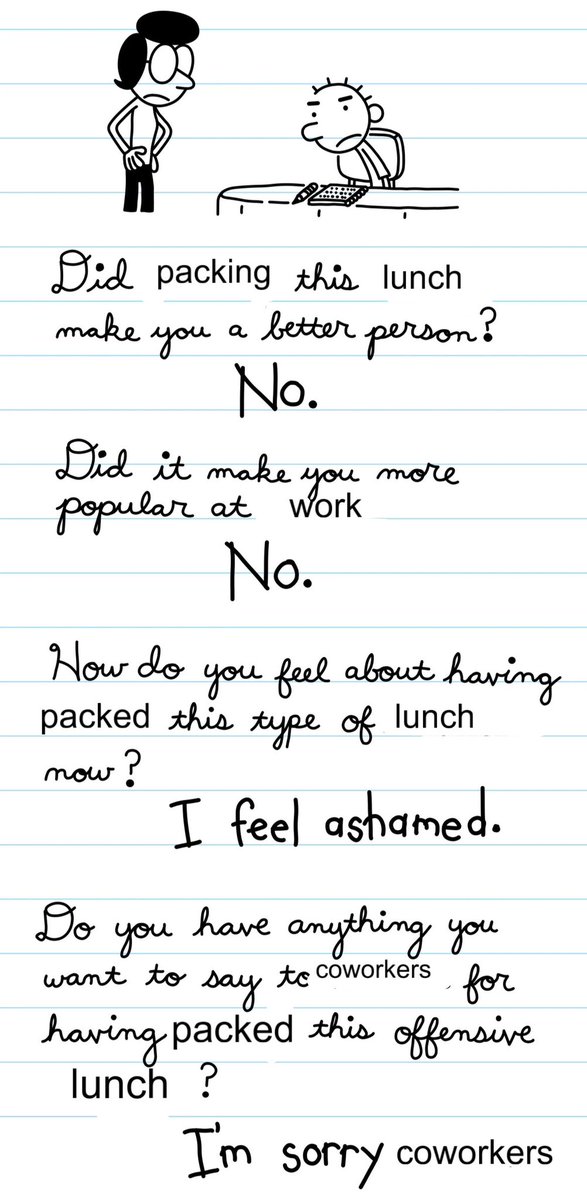 Did packing this lunch
make you a better person?
No.
Did it make you more
popular at work
No.
How do you feel about having
packed this type of lunch
now?
I feel ashamed.
Do you have anything you
want to say to coworkers for
having packed this offensive
lunch ?
I'm sorry coworkers